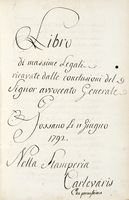 Libro
di massime Legali
ricavate dalle conclusioni del
Signor avvocato Generale
Fossano li 11 Giugno
1792.
Nella Stamperia